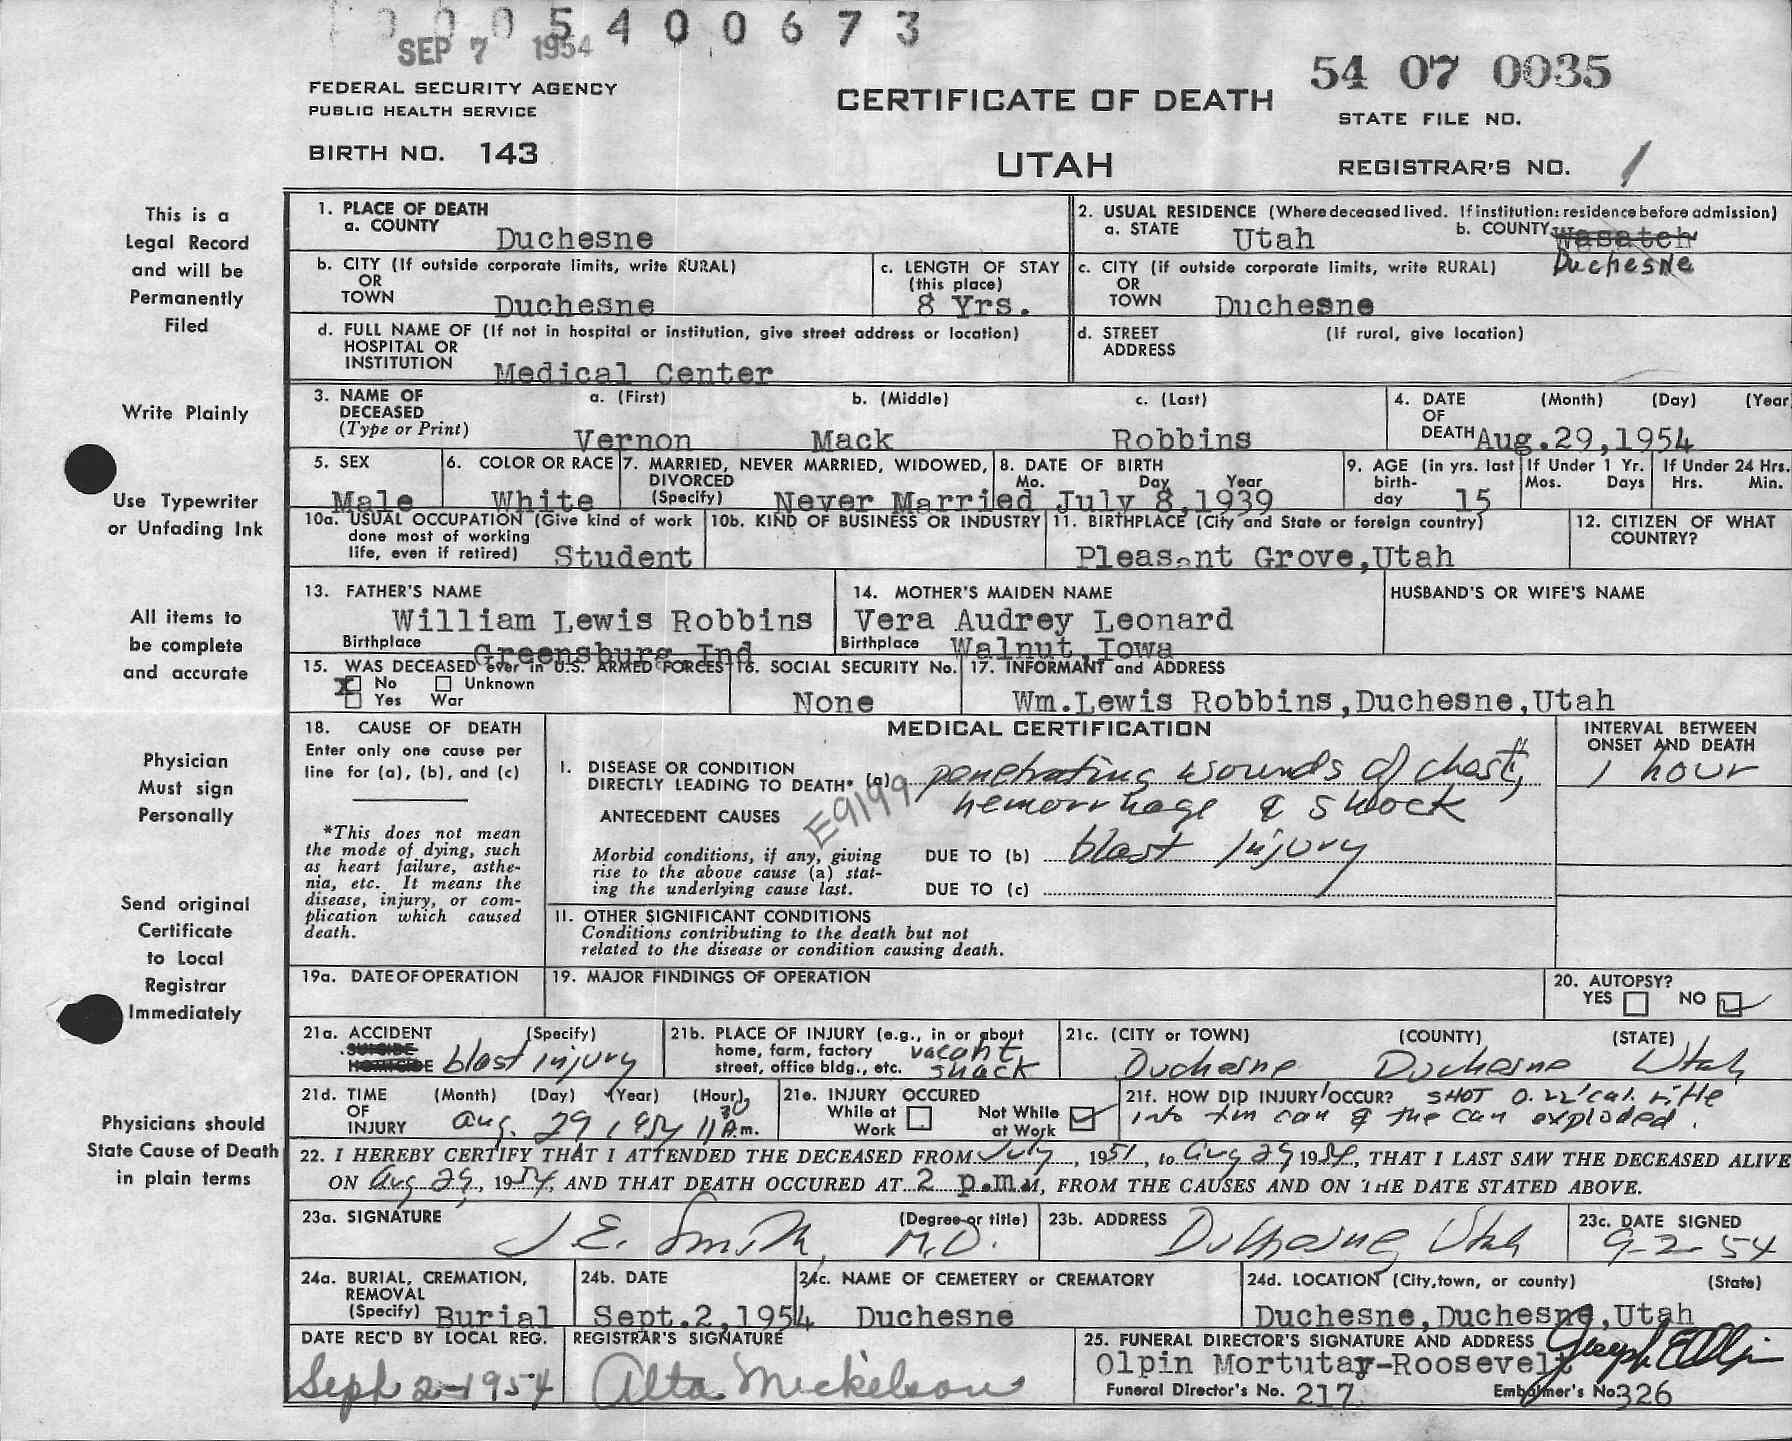 0005400673
SEP 7 1954
54 07 0035
FEDERAL SECURITY AGENCY
PUBLIC HEALTH SERVICE
CERTIFICATE OF DEATH
STATE FILE NO.
BIRTH NO. 143
UTAH
REGISTRAR'S NO. 1
This is a
Legal Record
and will be
Permanently
Filed
Write Plainly
Use Typewriter
or Unfading Ink
All items to
be complete
and accurate
Physician
Must sign
Personally
Send original
Certificate
to Local
Registrar
Immediately
Physicians should
State Cause of Death
in plain terms
1. PLACE OF DEATH
a. COUNTY Duchesne
2. USUAL RESIDENCE (Where deceased lived. If institution: residence before admission)
a. STATE Utah b. COUNTY Wasatch
Duchesne
b. CITY (If outside corporate limits, write RURAL)
OR
TOWN Duchesne
c. LENGTH OF STAY
(this place)
8 Yrs.
c. CITY (if outside corporate limits, write RURAL)
OR
TOWN Duchesne
d. FULL NAME OF (If not in hospital or institution, give street address or location)
HOSPITAL OR
INSTITUTION Medical Center
d. STREET (If rural, give location)
ADDRESS
3. NAME OF a. (First) b. (Middle) c. (Last)
DECEASED
(Type or Print) Vernon Mack Robbins
4. DATE (Month) (Day) (Year
OF
DEATH Aug.29,1954
5. SEX
Male
6. COLOR OR RACE
White
7. MARRIED, NEVER MARRIED, WIDOWED,
DIVORCED
(Specify) Never Married
8. DATE OF BIRTH
Mo. Day Year
July 8,1939
9. AGE (in yrs. last
birth-
day 15
If Under 1 Yr.
Mos. Days
If Under 24 Hrs.
Hrs. Min.
10a. USUAL OCCUPATION (Give kind of work
done most of working
life, even if retired) Student
10b. KIND OF BUSINESS OR INDUSTRY
11. BIRTHPLACE (City and State or foreign country)
Pleasant Grove,Utah
12. CITIZEN OF WHAT
COUNTRY?
13. FATHER'S NAME
William Lewis Robbins
Birthplace Greensburg Ind
14. MOTHER'S MAIDEN NAME
Vera Audrey Leonard
Birthplace Walnut,Iowa
HUSBAND'S OR WIFE'S NAME
15. WAS DECEASED ever in U.S. ARMED FORCES
X No Unknown
Yes War
16. SOCIAL SECURITY No.
None
17. INFORMANT and ADDRESS
Wm.Lewis Robbins,Duchesne,Utah
18. CAUSE OF DEATH
Enter only one cause per
line for (a), (b), and (c)
*This does not mean
the mode of dying, such
as heart failure, asthe-
nia, etc. It means the
disease, injury, or com-
plication which caused
death.
MEDICAL CERTIFICATION
INTERVAL BETWEEN
ONSET AND DEATH
1 hour
I. DISEASE OR CONDITION
DIRECTLY LEADING TO DEATH* (a) penetrating wounds of chest,
hemorrhage & shock
E9199
ANTECEDENT CAUSES
Morbid conditions, if any, giving
rise to the above cause (a) stat-
ing the underlying cause last.
DUE TO (b) blast injury
DUE TO (c)
II. OTHER SIGNIFICANT CONDITIONS
Conditions contributing to the death but not
related to the disease or condition causing death.
19a. DATE OF OPERATION
19. MAJOR FINDINGS OF OPERATION
20. AUTOPSY?
YES NO
21a. ACCIDENT (Specify)
SUICIDE
HOMICIDE blast injury
21b. PLACE OF INJURY (e.g., in or about
home, farm, factory vacant
street, office bldg., etc. shack
21c. (CITY or TOWN) (COUNTY) (STATE)
Duchesne Duchesne Utah
21d. TIME (Month) (Day) (Year) (Hour)
OF
INJURY Aug. 29, 1954 11 30 A.m.
21e. INJURY OCCURED
While at Not While
Work at Work
21f. HOW DID INJURY OCCUR? shot 0.22 cal. rifle
into tin can & the can exploded.
22. I HEREBY CERTIFY THAT I ATTENDED THE DECEASED FROM July, 1951, to Aug 29 1954, THAT I LAST SAW THE DECEASED ALIVE
ON Aug 29, 1954, AND THAT DEATH OCCURED AT 2 p.m.M, FROM THE CAUSES AND ON THE DATE STATED ABOVE.
23a. SIGNATURE (Degree or title)
J.E. Smith, M.D.
23b. ADDRESS Duchesne, Utah
23c. DATE SIGNED
9-2-54
24a. BURIAL, CREMATION,
REMOVAL
(Specify) Burial
24b. DATE
Sept.2,1954
24c. NAME OF CEMETERY or CREMATORY
Duchesne
24d. LOCATION (City,town, or county) (State)
Duchesne,Duchesne,Utah
DATE REC'D BY LOCAL REG.
Sept 2-1954
REGISTRAR'S SIGNATURE
Alta Mickelson
25. FUNERAL DIRECTOR'S SIGNATURE AND ADDRESS Joseph E Olpin
Olpin Mortutay-Roosevelt
Funeral Director's No. 217 Embalmer's No. 326